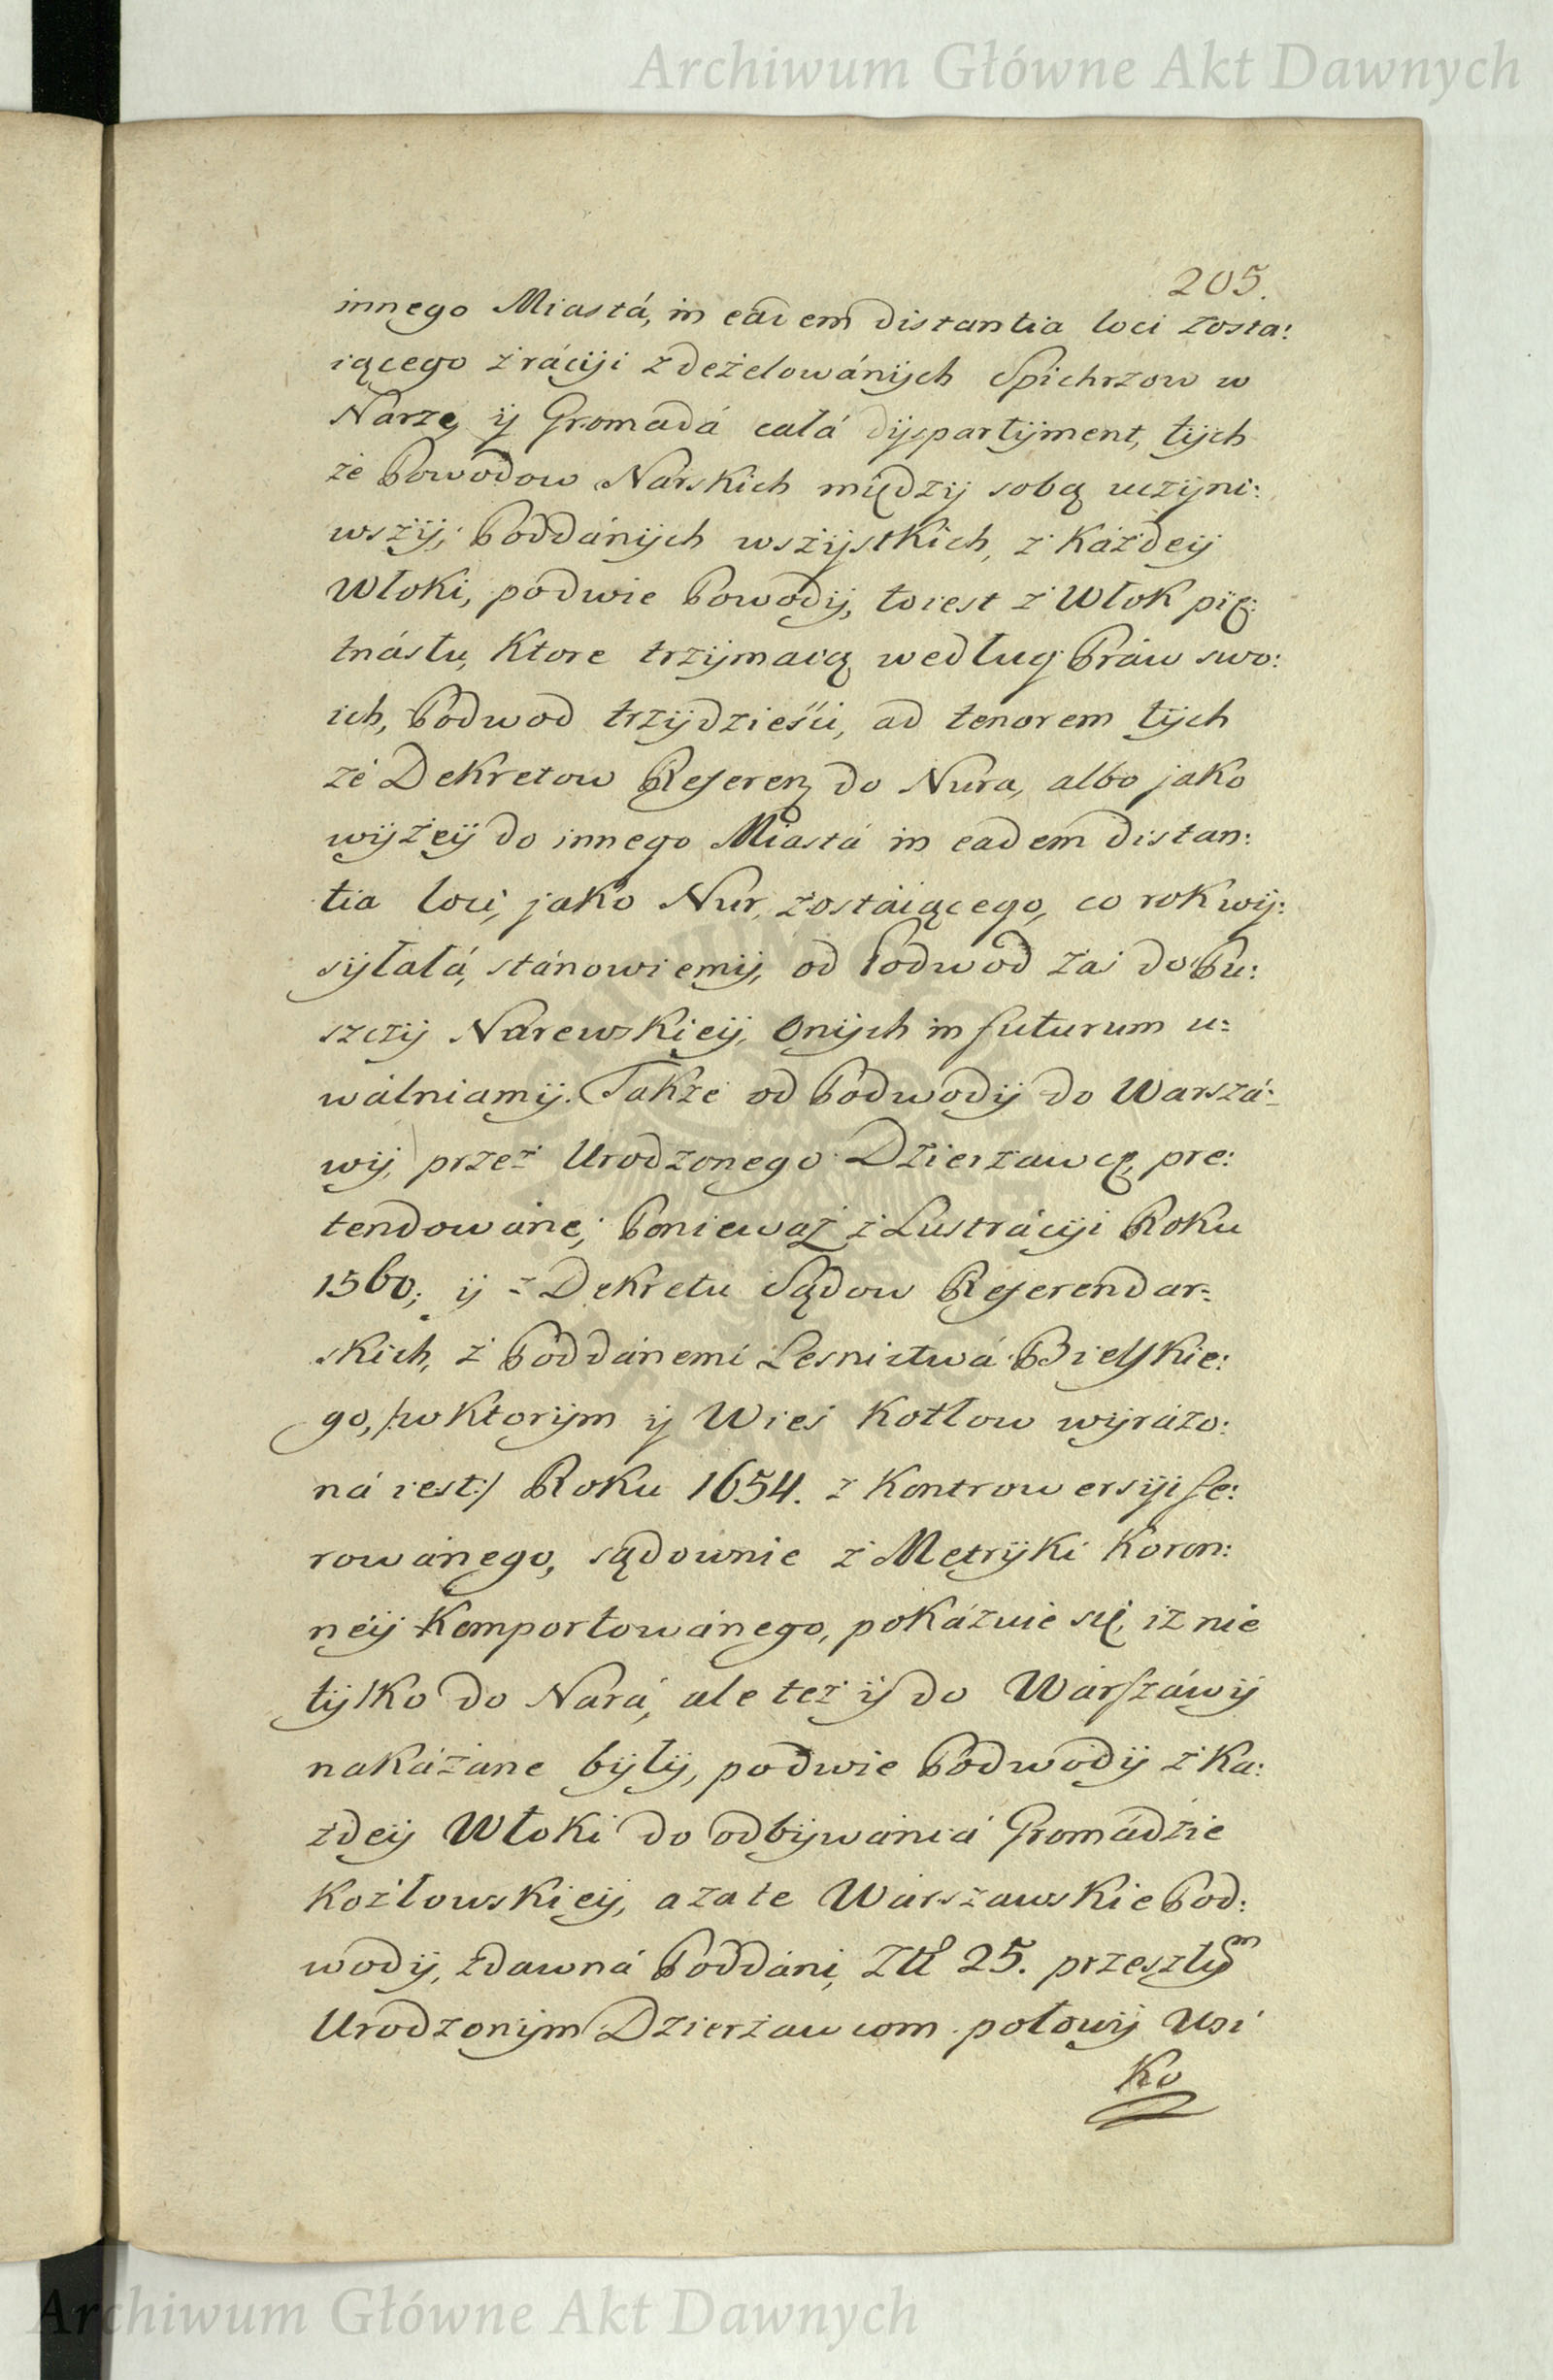 Archiwum Główne Akt Dawnych
205.
innego Miastá, in eadem distantia loci zosta:
iącego z ráciji zdeżelowánijch Spichrzow w
Narze, ij Gromadá całá dijspartijment, tijch
że Powodow Narskich międzij sobą uczijni:
wszij, Poddánijch wszijstkich, z każdeij
Włoki, podwie Powodij, to iest z Włok pię:
tnástu, ktore trzijmaią według Práw swo:
ich, Podwod trzijdzieści, ad tenorem tijch
że Dekretow Referen, do Nura, albo jako
wijżeij do innego Miastá in eadem distan:
tia loci, jako Nur, zostáiącego, co rok wij:
sijłałá, stánowiemij, od Podwod zaś do Pu:
szczij Narewskieij, Onijch in futurum u:
wálniamij. Także od Podwodij do Warszá:
wij, przez Urodzonego Dzierzawcę, pre:
tendowáne, Poniewaz z Lustráciji Roku
1560; ij z Dekretu Sądow Referendar:
skich, z Poddánemi Lesnictwá Bielskie:
go, /:w ktorijm ij Wieś Kotłow wijrázo:
ná iest:/ Roku 1654. z Kontrowersiji fe:
rowánego, sądownie z Metrijki Koron:
neij Komportowánego, pokázuie się, iz nie
tijlko do Nará, ale też ij do Warszáwij
nakázane bijłij, podwie Podwodij z ka:
zdeij Włoki do odbijwaniá Gromádzie
Kozłowskieij, a zate Warszawskie Pod:
wodij, zdawná Poddáni, Zł 25. przeszłijm
Urodzonijm Dzierżawcom połowij Wsi
Ko
Archiwum Główne Akt Dawnych